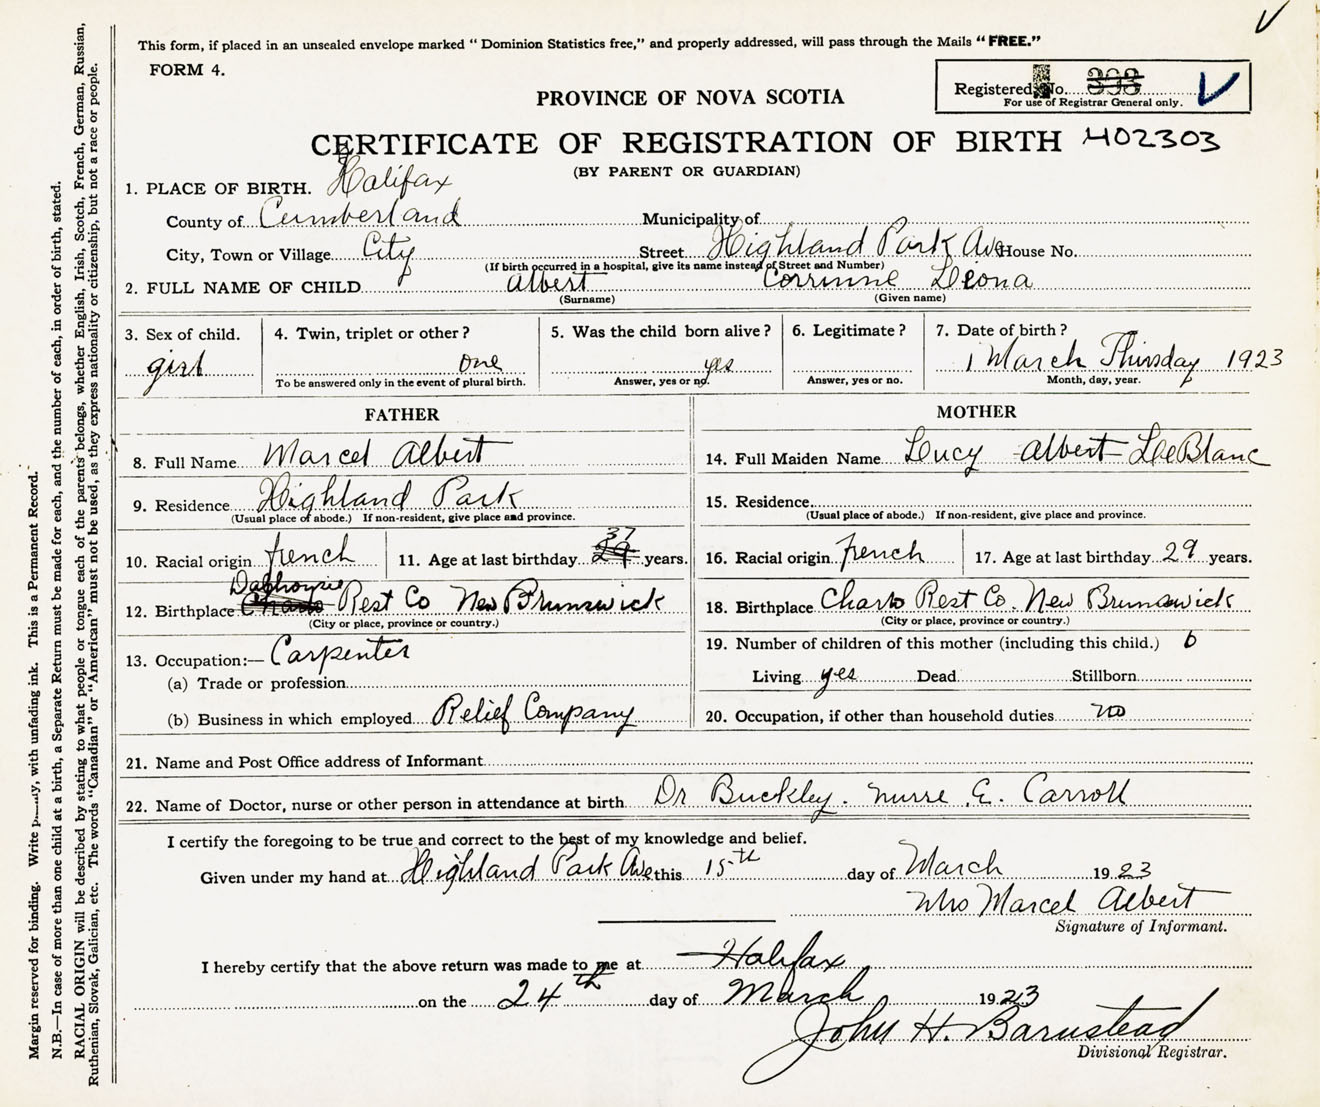 This form, if placed in an unsealed envelope marked "Dominion Statistics free," and properly addressed, will pass through the Mails "FREE."
FORM 4.
Registered No. 398
For use of Registrar General only.
PROVINCE OF NOVA SCOTIA
CERTIFICATE OF REGISTRATION OF BIRTH H02303
(BY PARENT OR GUARDIAN)
1. PLACE OF BIRTH. Halifax
County of Cumberland Municipality of
City, Town or Village City Street Highland Park Ave House No.
(If birth occurred in a hospital, give its name instead of Street and Number)
2. FULL NAME OF CHILD Albert Corrinne Leona
(Surname) (Given name)
3. Sex of child. 4. Twin, triplet or other? 5. Was the child born alive? 6. Legitimate? 7. Date of birth?
girl one yes 1 March Thursday 1923
To be answered only in the event of plural birth. Answer, yes or no. Answer, yes or no. Month, day, year.
FATHER MOTHER
8. Full Name Marcel Albert 14. Full Maiden Name Lucy Albert LeBlanc
9. Residence Highland Park 15. Residence
(Usual place of abode.) If non-resident, give place and province. (Usual place of abode.) If non-resident, give place and province.
37
10. Racial origin french 11. Age at last birthday 29 years. 16. Racial origin french 17. Age at last birthday 29 years.
Dalhousie
12. Birthplace Charlo Rest Co New Brunswick 18. Birthplace Charlo Rest Co. New Brunswick
(City or place, province or country.) (City or place, province or country.)
13. Occupation:— Carpenter 19. Number of children of this mother (including this child.) 6
(a) Trade or profession Living yes Dead Stillborn
(b) Business in which employed Relief Company 20. Occupation, if other than household duties no
21. Name and Post Office address of Informant
22. Name of Doctor, nurse or other person in attendance at birth Dr Buckley. nurse E. Carroll
I certify the foregoing to be true and correct to the best of my knowledge and belief.
Given under my hand at Highland Park Ave this 15th day of March 1923
Mrs Marcel Albert
Signature of Informant.
I hereby certify that the above return was made to me at Halifax
on the 24th day of March 1923
John H. Barnstead
Divisional Registrar.
Margin reserved for binding. Write with unfading ink. This is a Permanent Record.
N.B.—In case of more than one child at a birth, a Separate Return must be made for each, and the number of each, in order of birth, stated.
RACIAL ORIGIN will be described by stating to what people or tongue each of the parents belongs, whether English, Irish, Scotch, French, German, Russian,
Ruthenian, Slovak, Galician, etc. The words "Canadian" or "American" must not be used, as they express nationality or citizenship, but not a race or people.